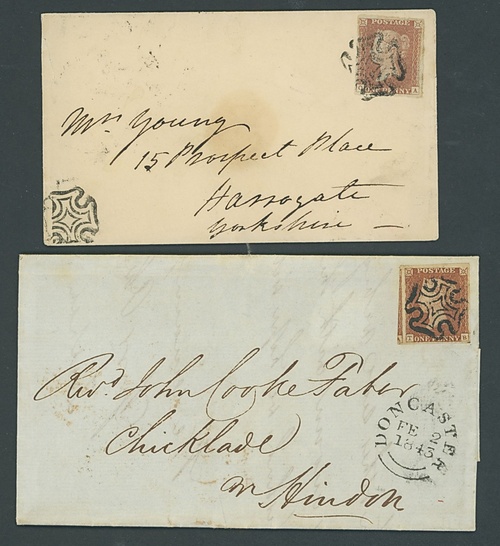 POSTAGE
ONE PENNY A
Mrs Young
15 Prospect Place
Harrogate
Yorkshire —
POSTAGE
ONE PENNY
Revd John Cooke Faber
Chicklade
nr Hindon
DONCASTER
FE 2
1843